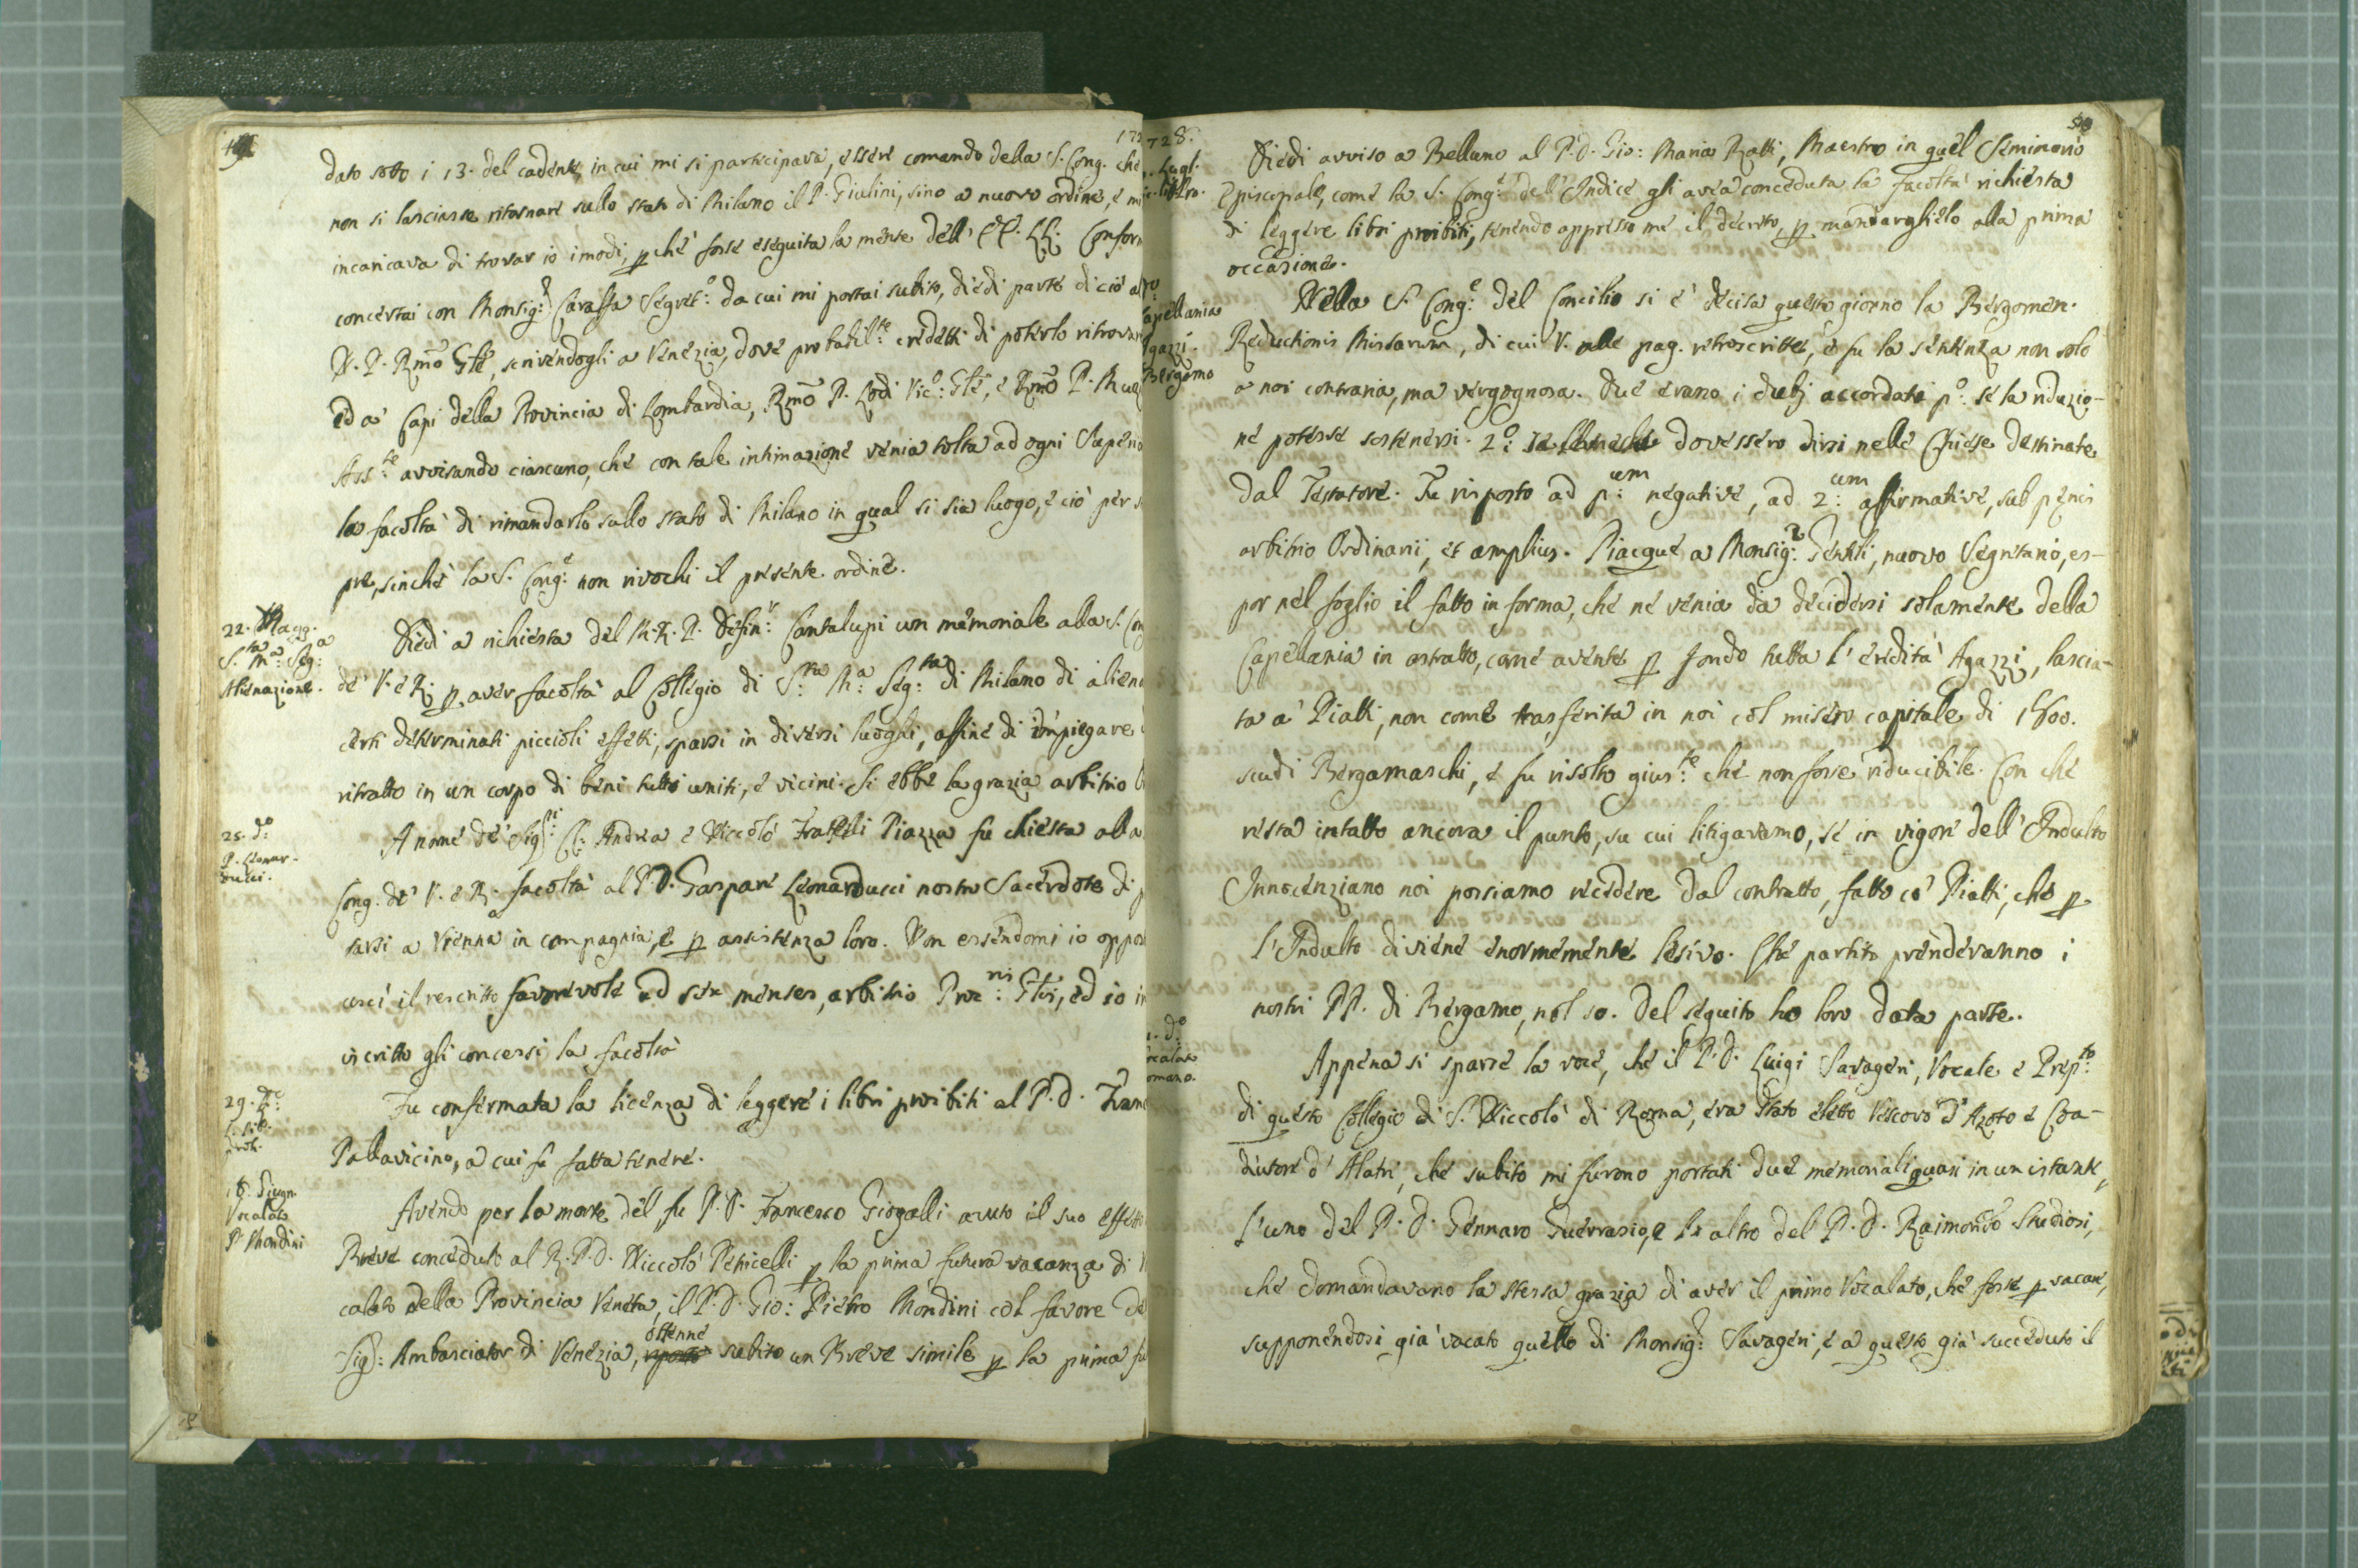 49
172
dato sotto i 13. del cadente, in cui mi si participava, essere comando della S. Cong. che
non si lasciasse ritornare sullo stato di Milano il P. Giulini, sino a nuovo ordine, e mi
incaricava di trovar io i modi, pchè fosse eseguita la mente dell' EE. LL. Conform
concertai con Monsig.r Caraffa Segret.o da cui mi portai subito, diedi parte di ciò al
N. P. Rmo Gle, scrivendogli a Venezia, dove probabil.te credetti di poterlo ritrovare
ed a' Capi della Provincia di Lombardia, Rmo P. Lodi Vic.o Gle, e Rmo P.
Ass.te avvisando ciascuno, che con tale intimazione venia tolta ad ogni Superio
la facoltà di rimandarlo sullo stato di Milano in qual si sia luogo, e ciò per s
pre, sinchè la S. Cong.e non rivochi il presente ordine.
22. Magg.
S.ta M.a Seg.a
Alienazione.
Diedi a richiesta del M. R. P. Defin.r Cantalupi un memoriale alla S. Con
de' V. e R. p aver facoltà al Collegio di S.ta M.a Seg.ta di Milano di aliena
certi determinati piccioli effetti, sparsi in diversi luoghi, affine di impiegare i
ritratto in un corpo di beni tutti uniti, e vicini. Si ebbe la grazia arbitrio
25. d.o
P. Leonar-
ducci.
A nome de' Sig.ri CC. Andrea e Niccolò Fratelli Piazza fu chiesta alla
Cong. de' V. e R. facoltà al P. D. Gaspare Leonarducci nostro Sacerdote di p
tarsi a Vienna in compagnia, e p assistenza loro. Non essendomi io oppos
uscì il rescritto favorevole ad sex menses, arbitrio Prae.ris Glis, ed io in
iscritto gli concessi la facoltà
29. d.o
L. lib.
proib.
Fu confermata la licenza di leggere i libri proibiti al P. D. Fran
Pallavicino, a cui fu fatta tenere.
18. Giugn.
Vocalato
P. Mondini
Avendo per la morte del fu P. D. Francesco Giorgalli avuto il suo effetto
Breve conceduto al R. P. D. Niccolò Petricelli p la prima futura vacanza di V
calato della Provincia Veneta, il P. D. Gio: Pietro Mondini col favore de
Sig.r Ambasciator di Venezia, ottenne subito un Breve simile p la prima fu
728.
50
Lugl.
libr.
Diedi avviso a Belluno al P. D. Gio: Maria Ratti, Maestro in quel Seminario
Episcopale, come la S. Cong.e dell' Indice gli avea conceduta la facoltà richiesta
di leggere libri proibiti, tenendo appresso me il decreto, p mandarglielo alla prima
occasione.
apellania
gazzi.
Bergamo
Nella S. Cong.e del Concilio si è decisa questo giorno la Bergomen.
Reductionis Missarum, di cui V. nelle pag. retroscritte, e fu la sentenza non solo
a noi contraria, ma vergognosa. Due erano i dubj accordati p.o se la riduzio-
ne potesse sostenersi. 2.o se dovessero dirsi nelle Chiese destinate
dal Testatore. Fu risposto ad p.um negative, ad 2.um affirmative, sub penis
arbitrio Ordinarii, et amplius. Piacque a Monsig.r Gentili, nuovo Segretario, es-
por nel foglio il fatto in forma, che ne venia da decidersi solamente della
Capellania in astratto, come avente p fondo tutta l' eredità Agazzi, lascia-
ta a' Piatti, non come trasferita in noi col misero capitale di 1800.
scudi Bergamaschi, e fu risolto gius.te che non fosse riducibile. Con che
resta intatto ancora il punto, su cui litigavamo, se in vigore dell' Indulto
Innocenziano noi possiamo recedere dal contratto, fatto co' Piatti, che p
l' Indulto diviene enormemente lesivo. Che partito prenderanno i
nostri PP. di Bergamo, nol so. Del seguito ho loro data parte.
d.o
ocalato
omano.
Appena si sparse la voce, che il P. D. Luigi Savageri, Vocale e Prep.to
di questo Collegio di S. Niccolò di Roma, era stato eletto Vescovo d' Azoto e Coa-
diutore d' Alatri, che subito mi furono portati due memoriali quasi in un istante,
l' uno del P. D. Gennaro Guerrasio, e l' altro del P. D. Raimondo Studiosi,
che domandavano la stessa grazia di aver il primo Vocalato, che fosse p vacare,
supponendosi già vacato quello di Monsig.r Savageri, e a questo già succeduto il